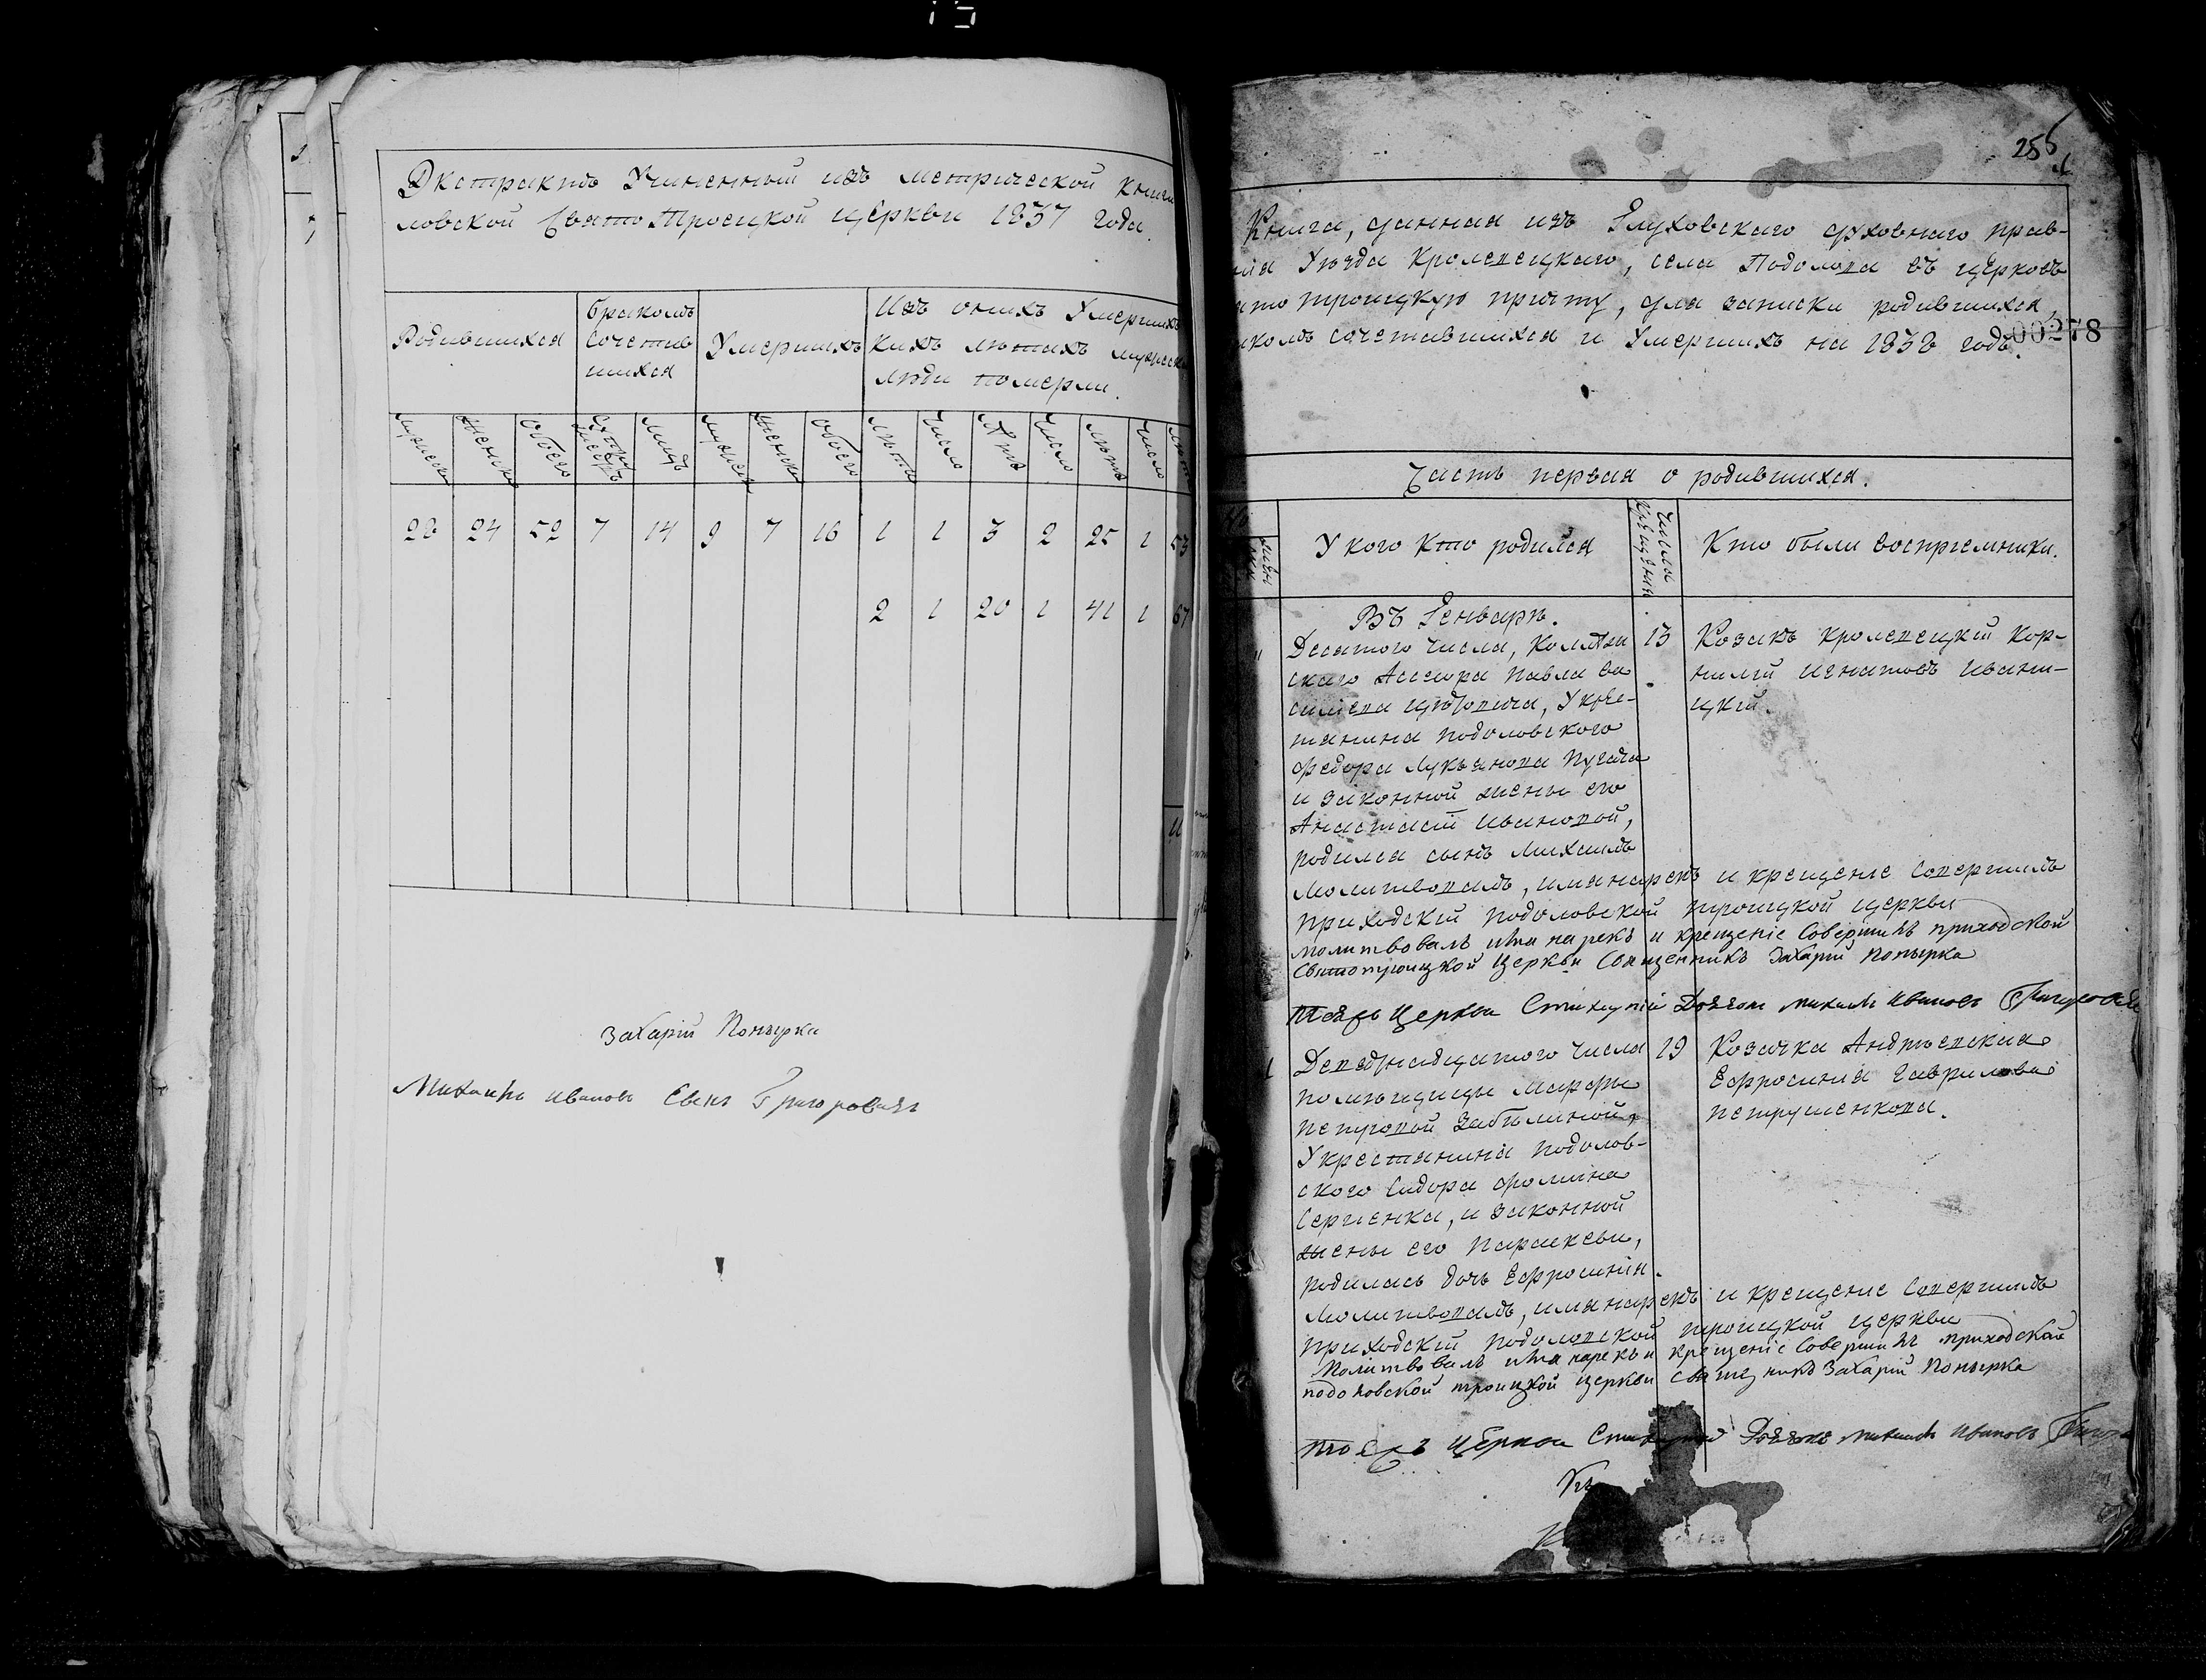 Экстрактъ Учиненный изъ метрической книги
ловской Свято Троецкой церкви 1837 года.
Родившихся
бракомъ Сочетавшихся
Умершихъ
Изъ оныхъ Умершихъ
кихъ лѣтахъ мужеска
люди померли.
мужеска женска Обоего супружествъ лицъ мужеска женска Обоего лѣта Число лѣта Число лѣта Число
28 24 52 7 14 9 7 16 1 1 3 2 25 1 53
2 1 20 1 41 1 67
Захарій Попырка
Михаилъ Ивановъ Сынъ Григоровичъ
256
Книга, данная изъ Глуховскаго духовнаго прав-
Уѣзда Кролевецкаго, села Подолова въ церковь
троицкую причту, для записки родившихся,
сочетавшихся и Умершихъ на 1838 годъ.
00278
Часть первая о родившихся.
У кого Кто родился
Числа крещенія
Кто были воспріемники.
Въ Генварѣ.
Десатого числа, Коллѣж
скаго Ассесора Павла Ва
силіева, Укре-
танина Подоловского
Федора Лукьянова Пугача
и законной жены его
Анастасіи Ивановой,
родился сынъ Михаилъ
13
Козакъ Кролевецкій Кор-
нилій Игнатовъ Ивани-
цкій.
Молитвовалъ, имя нарекъ и крещеніе Совершилъ
приходскій Подоловской троицкой церкви
молитвовалъ имя нарекъ и крещеніе Совершилъ приходской
Святотроицкой Церкви Священникъ Захарій Попырка
Тоеяжъ Церкви Стихарній Дьячокъ михаилъ Ивановъ
Девятнадцатого числа
помѣщицы Марфы
Петровой Забѣлиной,
Укрестанина Подолов-
ского Сидора Фомина
Сергіенка, и законной
жены его Параскевы,
родилась дочь Ефросинія.
19
Козачка Андрѣевская
Ефросинія Гаврилова
Петрушенкова.
Молитвовалъ, имя нарекъ и крещеніе Совершилъ
приходскій Подоловской троицкой церкви
Молитвовалъ имя нарекъ и крещеніе Совершилъ приходской
подоловской троицкой церкви священникъ Захарій Попырка
тоеяжъ Церкви Дьячокъ михаилъ Ивановъ